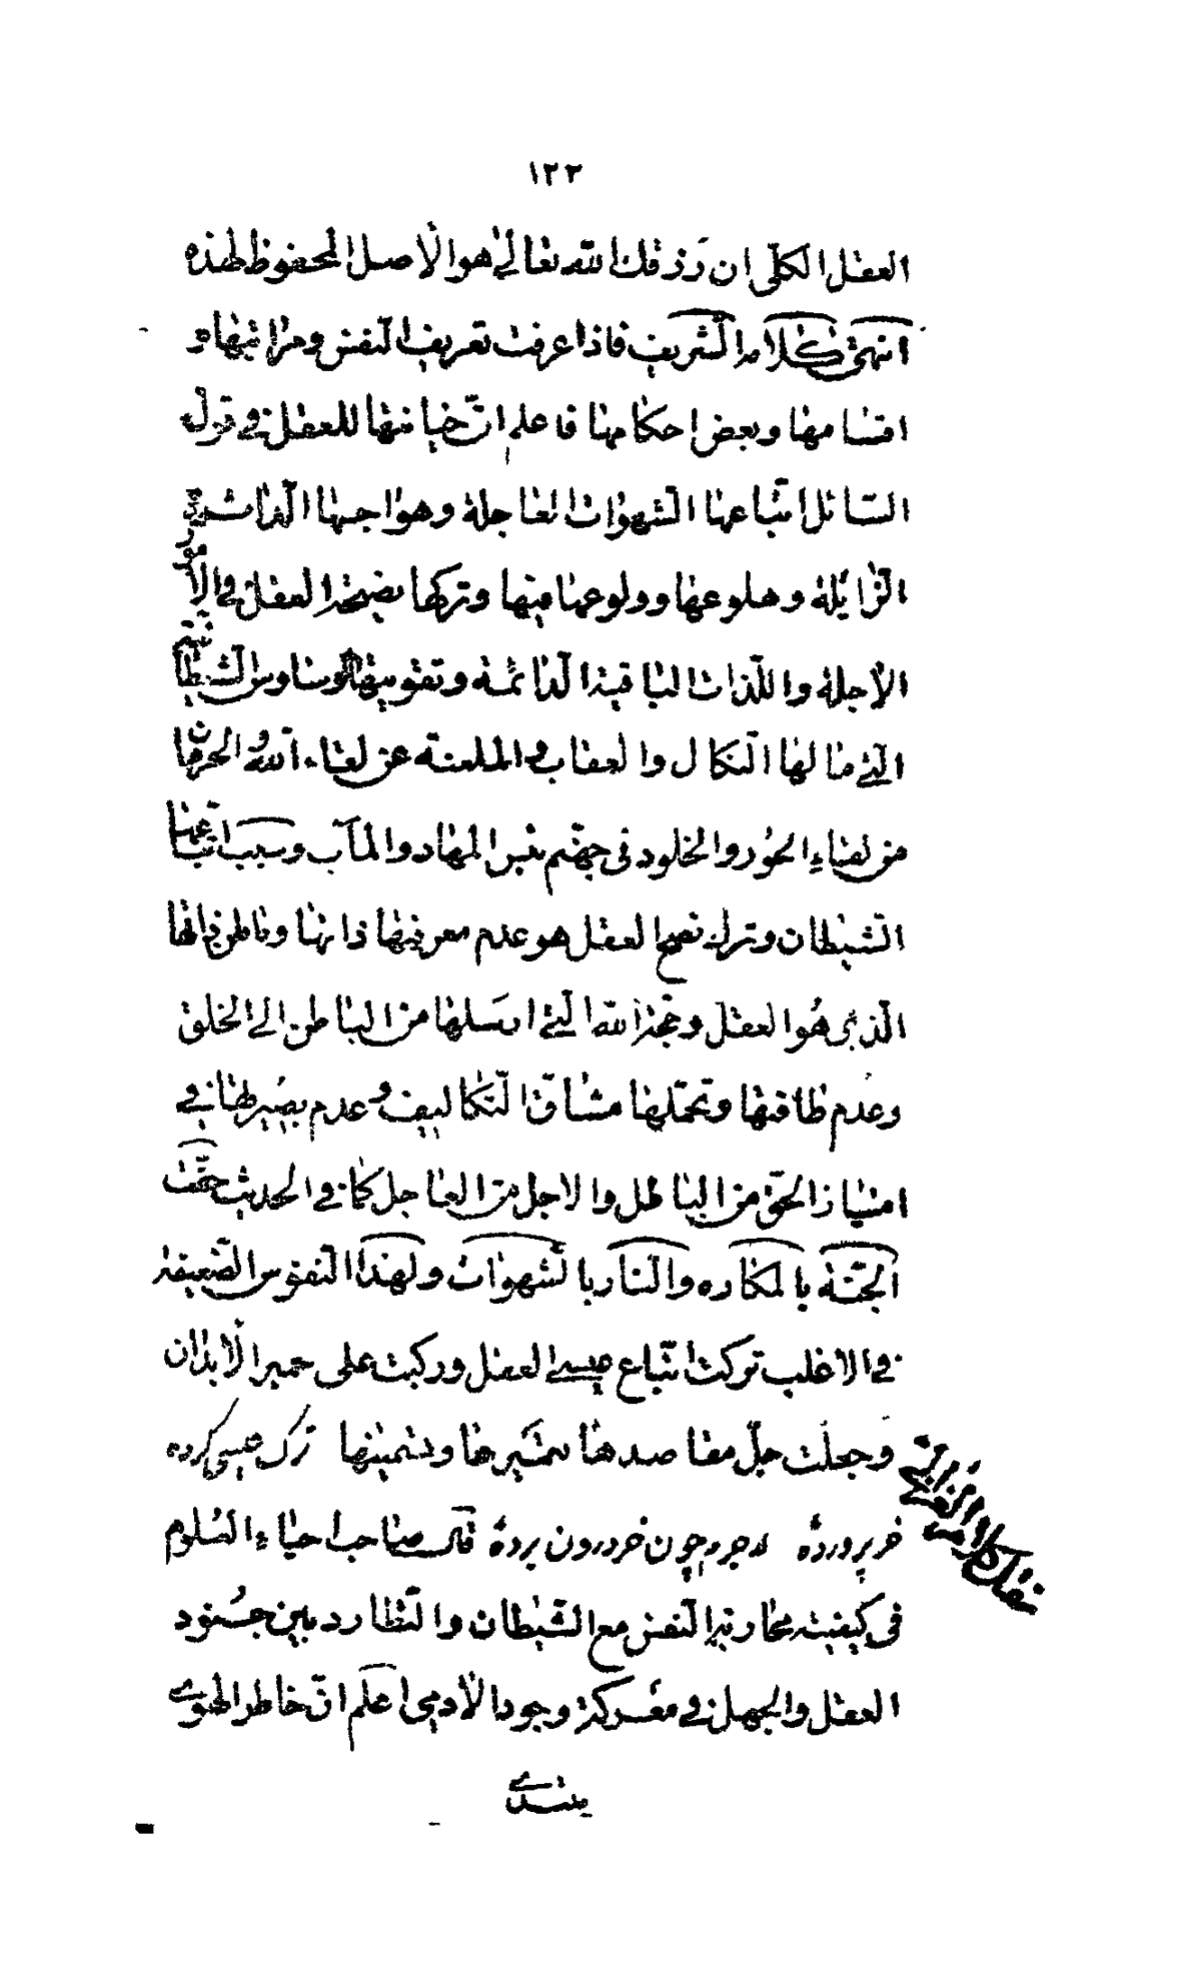 ١٢٣
العقل الكلّى ان رَزقك اللّه تعالى هو الاصل المحفوظ لهذه
انتهى كلامه الشّريف فاذا عرفت تعريف النّفس ومراتبها و
اقسامها وبعض احكامها فاعلم انّ خيانتها للعقل فى قول
السّائل اتّباعها الشّهوات العاجلة وهواجسها الّذات
الزّائلة وهلوعها وولوعها فيها وتركها نصيحة العقل فى الأمور
الآجلة واللّذات الباقية الدّائمة وتفويتها لوساوس الشّيطا
الّتى مالها النّكال والعقاب والملعنة عن لقاء اللّه والحرمان
من لقاء الحُور والخلود فى جهنّم بئس المهاد والمآب وسبب اتّباعها
الشّيطان وترك نصح العقل هو عدم معرفتها ذاتها وباطن ذاتها
الّذى هُو العقل وحجّة اللّه الّتى ارسلها من الباطن الى الخلق
وعدم طاقتها وتحمّلها مشاقّ التّكاليف وعدم بصيرتها فى
امتياز الحقّ من الباطل والاجل من العاجل كما فى الحديث حفّت
الجنّة بالمكاره والنّار بالشّهوات ولهذا النّفوس الضّعيفة
فى الاغلب تركت اتّباع عيسى العقل وركبت على حمير الأبدان
وجعلت جلّ مقاصدها وتسمينها ترك عيسى كرده
خر پرورده لاجرم چون خر درون پرده قال صاحب احياء العُلوم
نقل كلام من الغزالى
فى كيفيّة محاربة النّفس مع الشّيطان والتّطارد بين جُنود
العقل والجهل فى معركة وجود الآدمى اعلم انّ خاطر الهوى
يبتدى